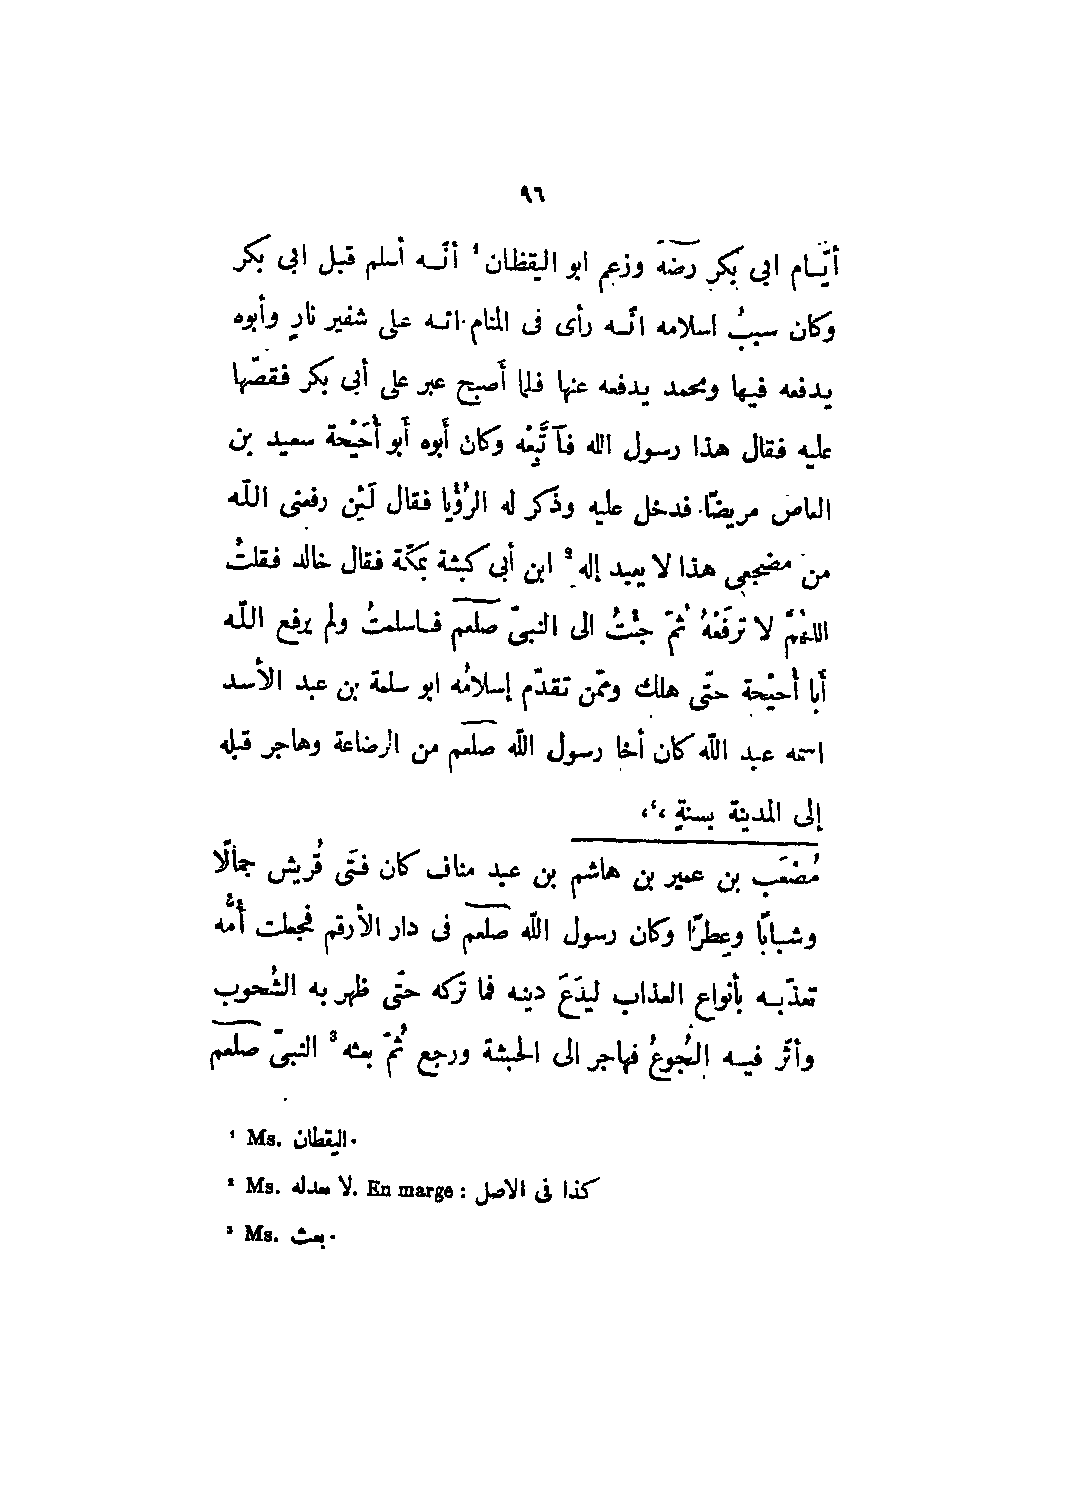 ٩٦
أيّام ابى بكر رضّه وزعم ابو اليقظان¹ أنّه أسلم قبل ابى بكر
وكان سببُ اسلامه انّه رأى فى المنام انه على شفير نارٍ وأبوه
يدفعه فيها ومحمد يدفعه عنها فلمّا أصبح عبر على أبى بكر فقصّها
عليه فقال هذا رسول الله فاَتَّبِعْه وكان أبوه أبو أُحَيْحة سعيد بن
العاص مريضًا فدخل عليه وذكر له الرُؤْيا فقال لَئِن رفعنى اللّه
من مضجعى هذا لا يعبد إله² ابن أبى كبشة بمكّة فقال خالد فقلتُ
اللهُمّ لا ترفَعْهُ ثمّ جئْتُ الى النبىّ صلعم فاسلمتُ ولم يرفع اللّه
أبا أُحيْحة حتّى هلك وممّن تقدّم إسلامُه ابو سلمة بن عبد الأسد
اسمه عبد اللّه كان أخا رسول اللّه صلعم من الرضاعة وهاجر قبله
إلى المدينة بسنةٍ ،،
مُصْعَب بن عمير بن هاشم بن عبد مناف كان فتَى قُريش جمالًا
وشبابًا وعِطرًا وكان رسول اللّه صلعم فى دار الأرقم فجعلت أُمُّه
تعذّبه بأنواع العذاب ليَدَعَ دينه فما تركه حتّى ظهر به الشُحوب
وأثّر فيه الجُوعُ فهاجر الى الحبشة ورجع ثُمّ بعثه³ النبىّ صلعم
¹ Ms. اليقطان.
² Ms. لا معدله. En marge : كذا فى الاصل
³ Ms. بعث.